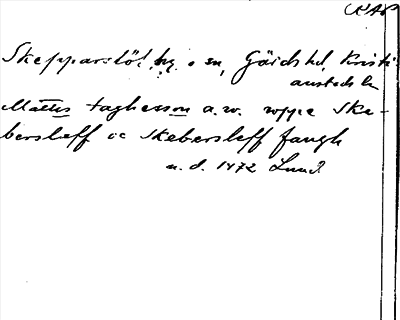 (KrA)
Skepparslöv, by o sn, Gärds hd, Kristi-
anstads län
Matis taghesson a.w. oppe Ske-
bersleff oc Skebersleff fangh
u. d. 1472 Lund.